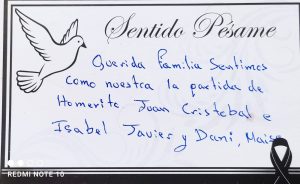 Sentido Pésame
Querida Familia Sentimos
como nuestra la partida de
Homerito. Juan Cristobal e
Isabel Javier y Dani, Maise
REDMI NOTE 10